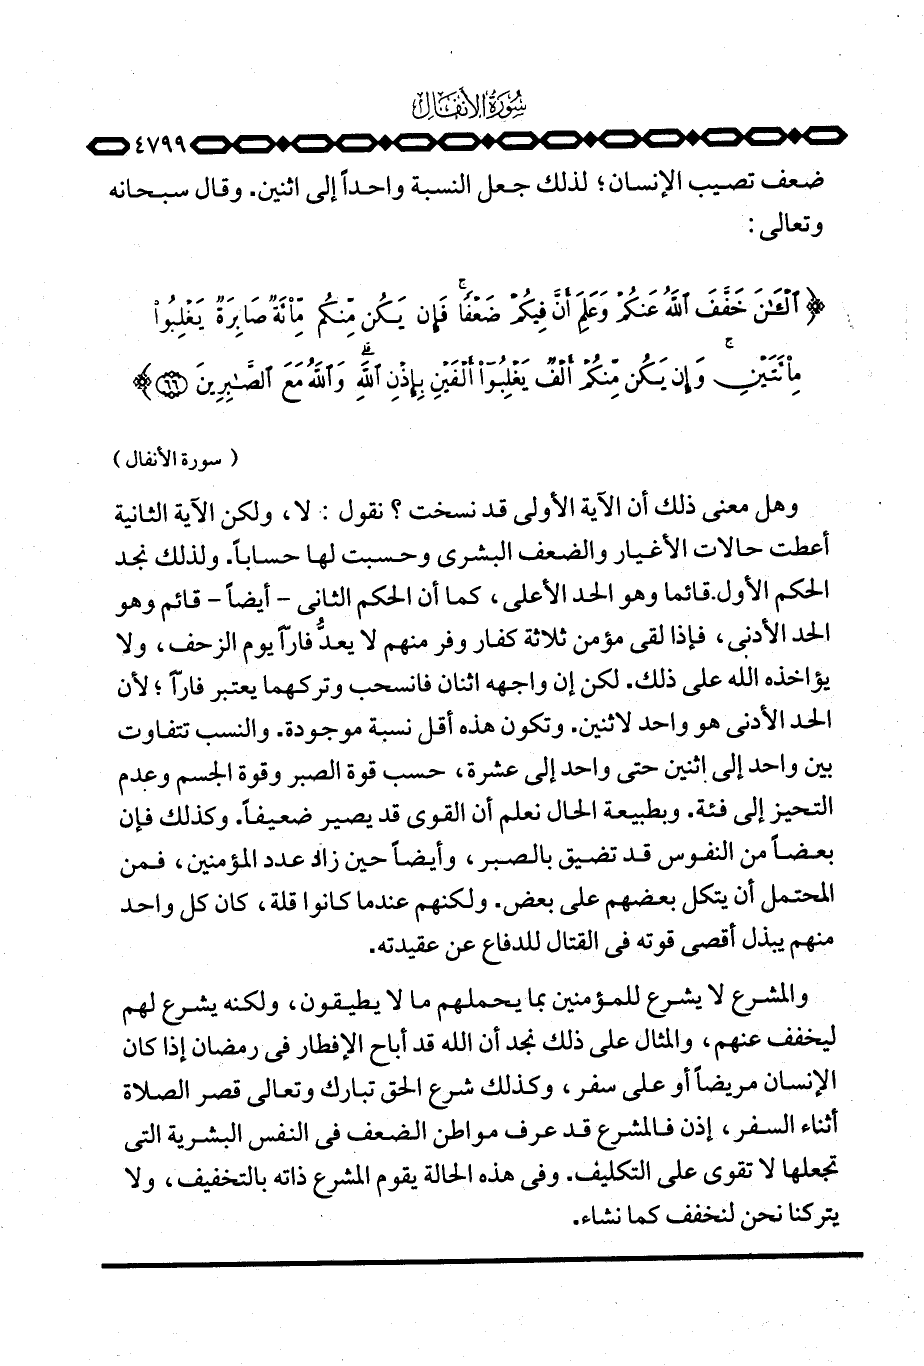 سُورَةُ الأَنفَال
٤٧٩٩
ضعف تصيب الإنسان؛ لذلك جعل النسبة واحداً إلى اثنين. وقال سبحانه
وتعالى :
﴿ ٱلْـَٰٔنَ خَفَّفَ ٱللَّهُ عَنكُمْ وَعَلِمَ أَنَّ فِيكُمْ ضَعْفًا ۚ فَإِن يَكُن مِّنكُم مِّا۟ئَةٌ صَابِرَةٌ يَغْلِبُوا۟
مِا۟ئَتَيْنِ ۚ وَإِن يَكُن مِّنكُمْ أَلْفٌ يَغْلِبُوٓا۟ أَلْفَيْنِ بِإِذْنِ ٱللَّهِ ۗ وَٱللَّهُ مَعَ ٱلصَّٰبِرِينَ ٦٦ ﴾
( سورة الأنفال )
وهل معنى ذلك أن الآية الأولى قد نسخت ؟ نقول : لا، ولكن الآية الثانية
أعطت حالات الأغيار والضعف البشرى وحسبت لها حساباً. ولذلك نجد
الحكم الأول.قائما وهو الحد الأعلى، كما أن الحكم الثانى - أيضاً - قائم وهو
الحد الأدنى، فإذا لقى مؤمن ثلاثة كفار وفر منهم لا يعدُّ فارّاً يوم الزحف، ولا
يؤاخذه الله على ذلك. لكن إن واجهه اثنان فانسحب وتركهما يعتبر فارّاً ؛ لأن
الحد الأدنى هو واحد لاثنين. وتكون هذه أقل نسبة موجودة. والنسب تتفاوت
بين واحد إلى إثنين حتى واحد إلى عشرة، حسب قوة الصبر وقوة الجسم وعدم
التحيز إلى فئة. وبطبيعة الحال نعلم أن القوى قد يصير ضعيفاً. وكذلك فإن
بعضاً من النفوس قد تضيق بالصبر، وأيضاً حين زاد عدد المؤمنين، فمن
المحتمل أن يتكل بعضهم على بعض. ولكنهم عندما كانوا قلة، كان كل واحد
منهم يبذل أقصى قوته فى القتال للدفاع عن عقيدته.
والمشرع لا يشرع للمؤمنين بما يحملهم ما لا يطيقون، ولكنه يشرع لهم
ليخفف عنهم، والمثال على ذلك نجد أن الله قد أباح الإفطار فى رمضان إذا كان
الإنسان مريضاً أو على سفر، وكذلك شرع الحق تبارك وتعالى قصر الصلاة
أثناء السفر، إذن فالمشرع قد عرف مواطن الضعف فى النفس البشرية التى
تجعلها لا تقوى على التكليف. وفى هذه الحالة يقوم المشرع ذاته بالتخفيف، ولا
يتركنا نحن لنخفف كما نشاء.